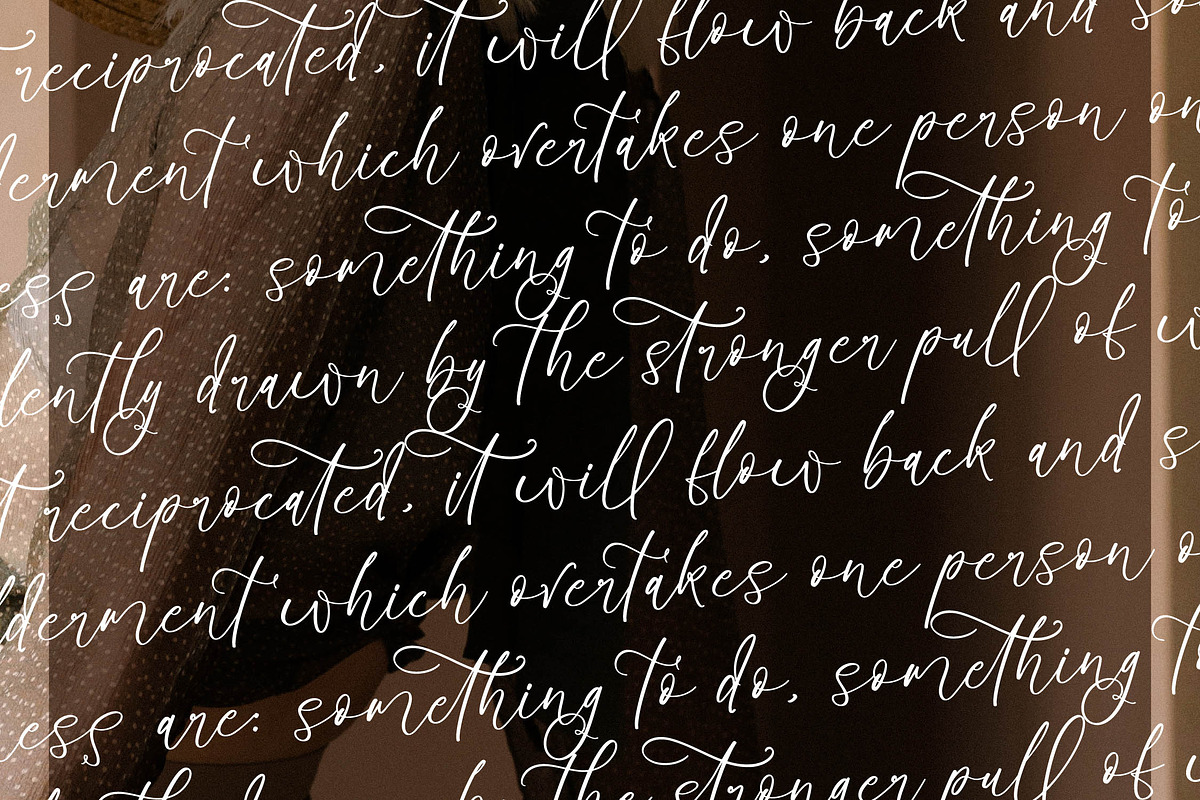 reciprocated, it will flow back and so
derment which overtakes one person on
ess are: something to do, something to
lently drawn by the stronger pull of w
t reciprocated, it will flow back and s
lderment which overtakes one person o
ess are: something to do, something to
by the stronger pull of w